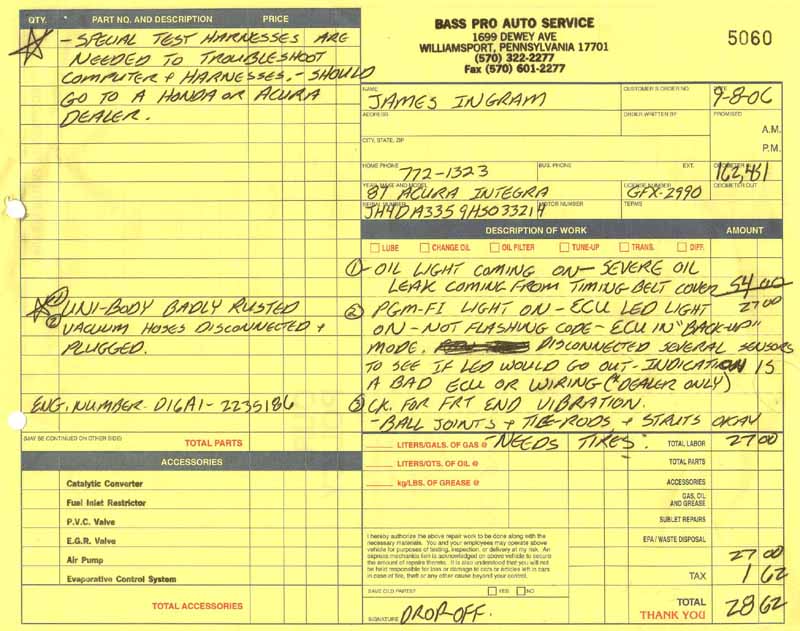 QTY. PART NO. AND DESCRIPTION PRICE
- SPECIAL TEST HARNESSES ARE
NEEDED TO TROUBLESHOOT
COMPUTER + HARNESSES. - SHOULD
GO TO A HONDA OR ACURA
DEALER.
① UNI-BODY BADLY RUSTED
② VACUUM HOSES DISCONNECTED +
PLUGGED.
ENG. NUMBER - D16A1 - 2235186
(MAY BE CONTINUED ON OTHER SIDE) TOTAL PARTS
ACCESSORIES
Catalytic Converter
Fuel Inlet Restrictor
P.V.C. Valve
E.G.R. Valve
Air Pump
Evaporative Control System
TOTAL ACCESSORIES
BASS PRO AUTO SERVICE
1699 DEWEY AVE
WILLIAMSPORT, PENNSYLVANIA 17701
(570) 322-2277
Fax (570) 601-2277
5060
NAME JAMES INGRAM CUSTOMER'S ORDER NO. DATE 9-8-06
ADDRESS ORDER WRITTEN BY PROMISED
A.M.
CITY, STATE, ZIP P.M.
HOME PHONE 772-1323 BUS. PHONE EXT. ODOMETER IN 162,451
YEAR, MAKE AND MODEL 87 ACURA INTEGRA LICENSE NUMBER GFX-2990 ODOMETER OUT
SERIAL NUMBER JH4DA3359HS033214 MOTOR NUMBER TERMS
DESCRIPTION OF WORK AMOUNT
LUBE CHANGE OIL OIL FILTER TUNE-UP TRANS. DIFF.
① - OIL LIGHT COMING ON - SEVERE OIL
LEAK COMING FROM TIMING BELT COVER 54 00
② - PGM-FI LIGHT ON - ECU LED LIGHT 27 00
ON - NOT FLASHING CODE - ECU IN "BACK-UP"
MODE. DISCONNECTED SEVERAL SENSORS
TO SEE IF LED WOULD GO OUT - INDICATION IS
A BAD ECU OR WIRING (*DEALER ONLY)
③ CK. FOR FRT END VIBRATION.
- BALL JOINTS + TIE-RODS + STRUTS OKAY
LITERS/GALS. OF GAS @ - NEEDS TIRES. TOTAL LABOR 27 00
LITERS/QTS. OF OIL @ TOTAL PARTS
kg/LBS. OF GREASE @ ACCESSORIES
GAS, OIL
AND GREASE
SUBLET REPAIRS
I hereby authorize the above repair work to be done along with the
necessary materials. You and your employees may operate above
vehicle for purposes of testing, inspection, or delivery at my risk. An
express mechanics lien is acknowledged on above vehicle to secure
the amount of repairs thereto. It is also understood that you will
not be held responsible for loss or damage to cars or articles left in cars
in case of fire, theft or any other cause beyond your control.
EPA / WASTE DISPOSAL
27 00
TAX 1 62
SAVE OLD PARTS? YES NO
SIGNATURE DROP OFF.
TOTAL 28 62
THANK YOU